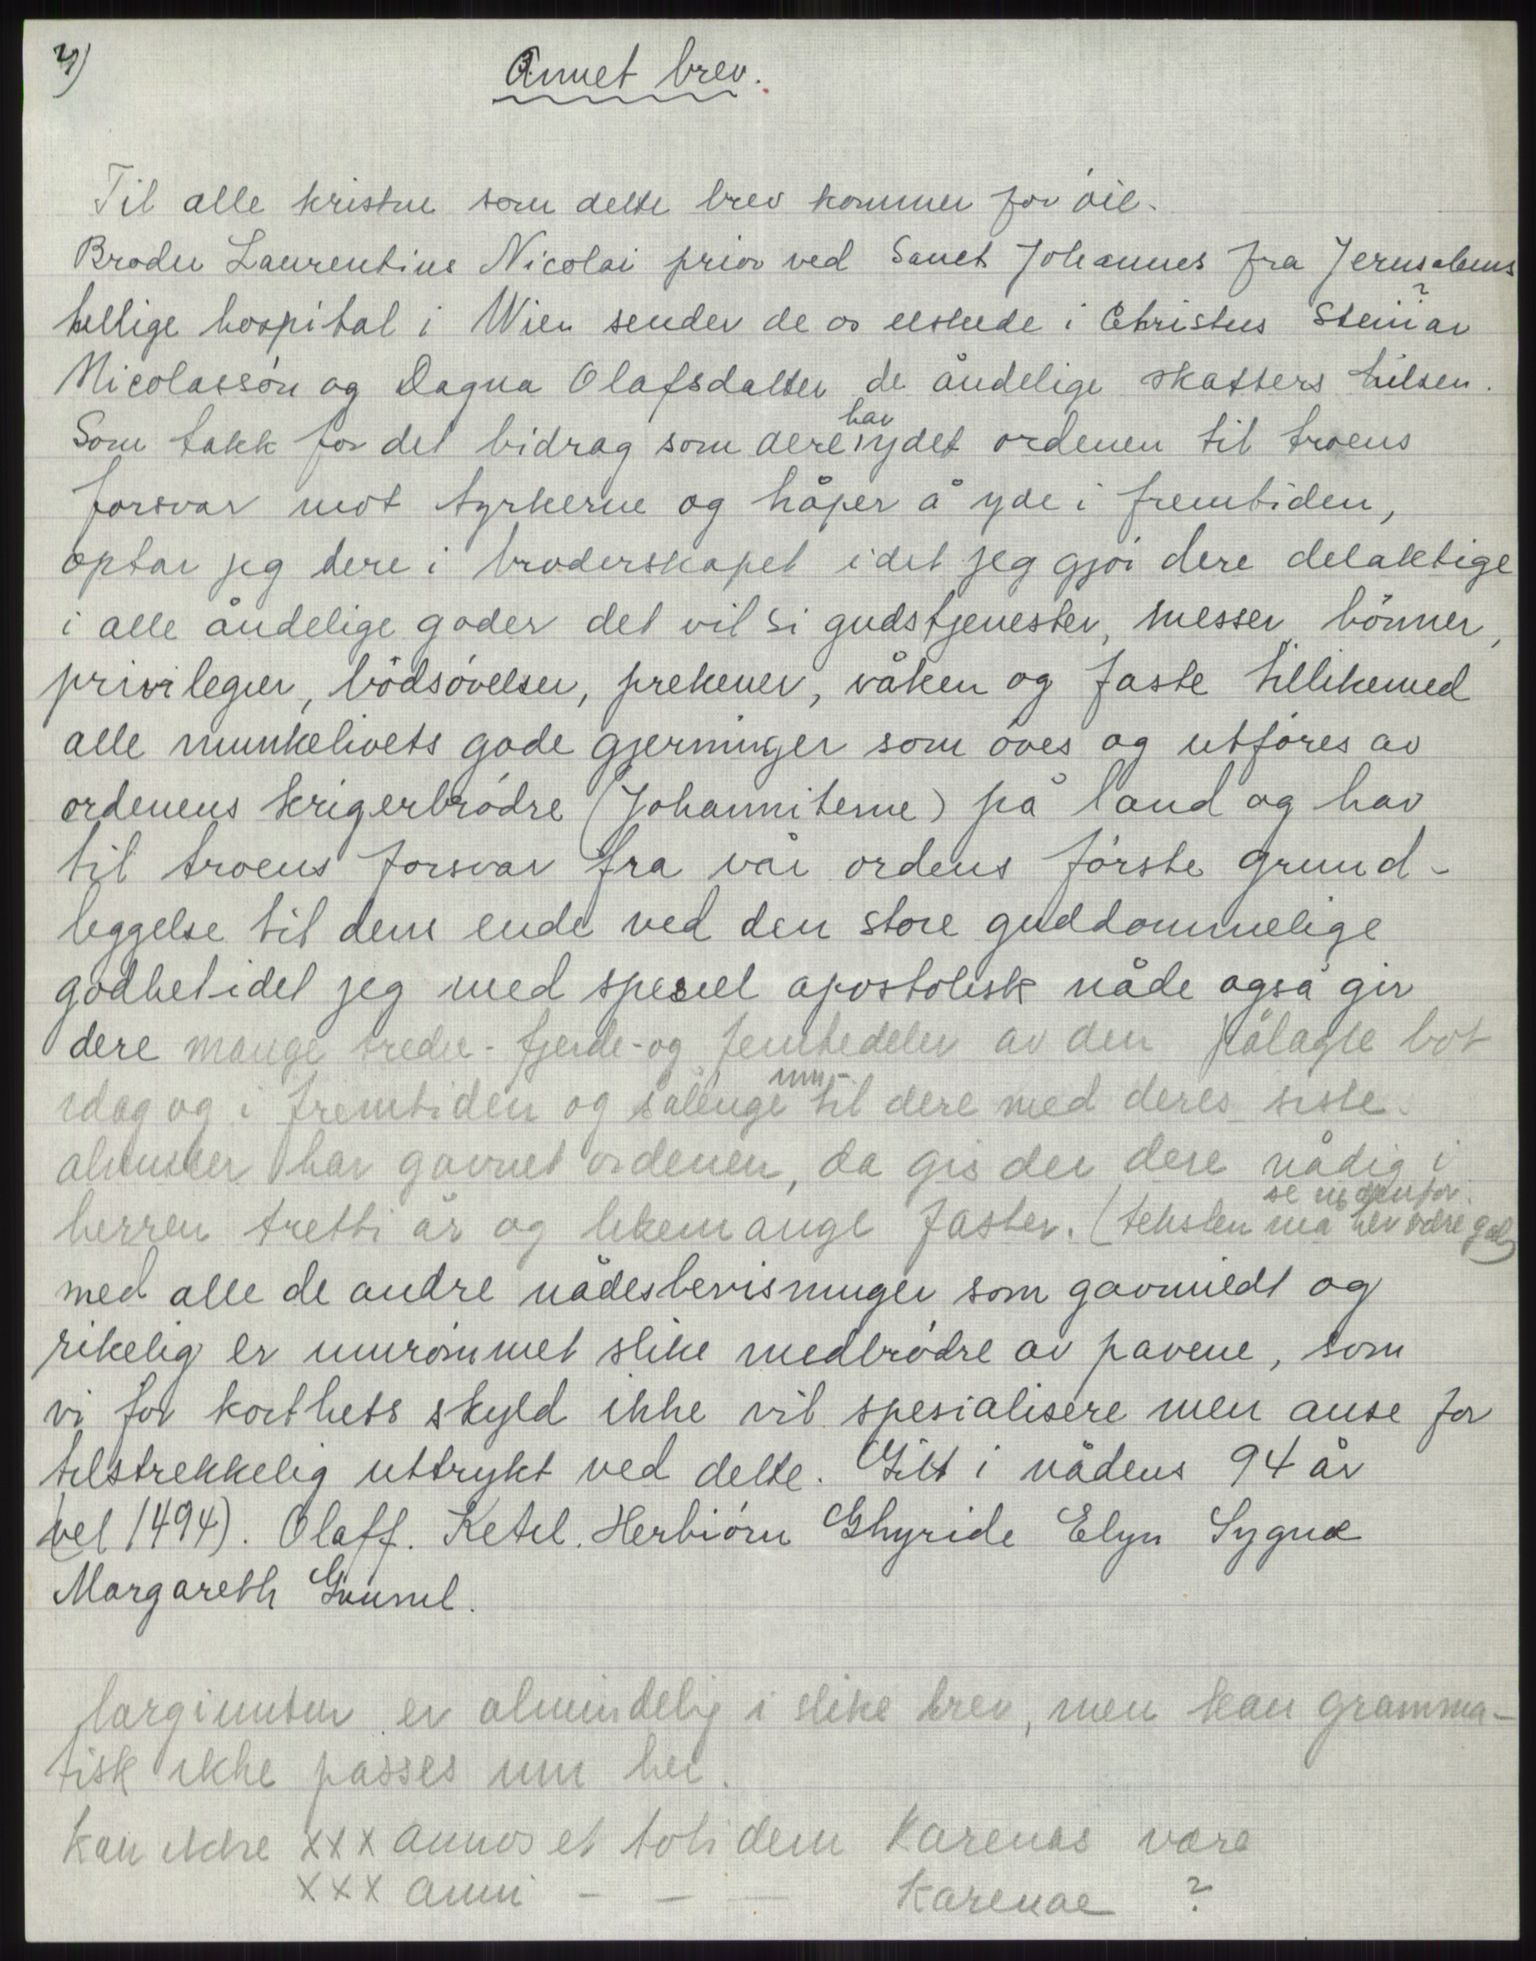 4)
Annet brev.
Til alle kristne som dette brev kommer for öie.
Broder Laurentius Nicolai prior ved Sanct Johannes fra Jerusalems
hellige hospital i Wien sender de os elskede i Christus Steinar ?
Nicolassön og Dagna Olafsdatter de åndelige skatters hilsen.
Som takk for det bidrag som dere har ydet ordenen til troens
forsvar mot tyrkerne og håper å yde i fremtiden,
optar jeg dere i broderskapet idet jeg gjör dere delaktige
i alle åndelige goder det vil si gudstjenester, messer, bönner,
privilegier, bodsövelser, prekener, våken og faste tillikemed
alle munkelivets gode gjerninger som öves og utföres av
ordenens krigerbrödre (Johanniterne) på land og hav
til troens forsvar fra vår ordens förste grund-
leggelse til dens ende ved den store guddommelige
godhet idet jeg med spesiel apostolisk nåde også gir
dere mange tredie- fjerde- og femtedeler av den pålagte bot
idag og i fremtiden og sålenge inn- til dere med deres siste
almisser har gavnet ordenen, da gis der dere nådig i
herren tretti år og likemange faster. (teksten må her være gal,
se nedenfor.)
med alle de andre nådesbevisninger som gavmildt og
rikelig er innrömmet slike medbrödre av pavene, som
vi for korthets skyld ikke vil spesialisere men anse for
tilstrekkelig uttrykt ved dette. Gitt i nådens 94 år
(vel 1494). Olaff. Ketel. Herbiörn Ghyride Elyn Sygne
Margareth Gunnel.
largiuntur er almindelig i slike brev, men kan gramma-
tisk ikke passes inn her.
Kan ikke XXX annos et totidem Karenas være
XXX anni - - - Karenae ?